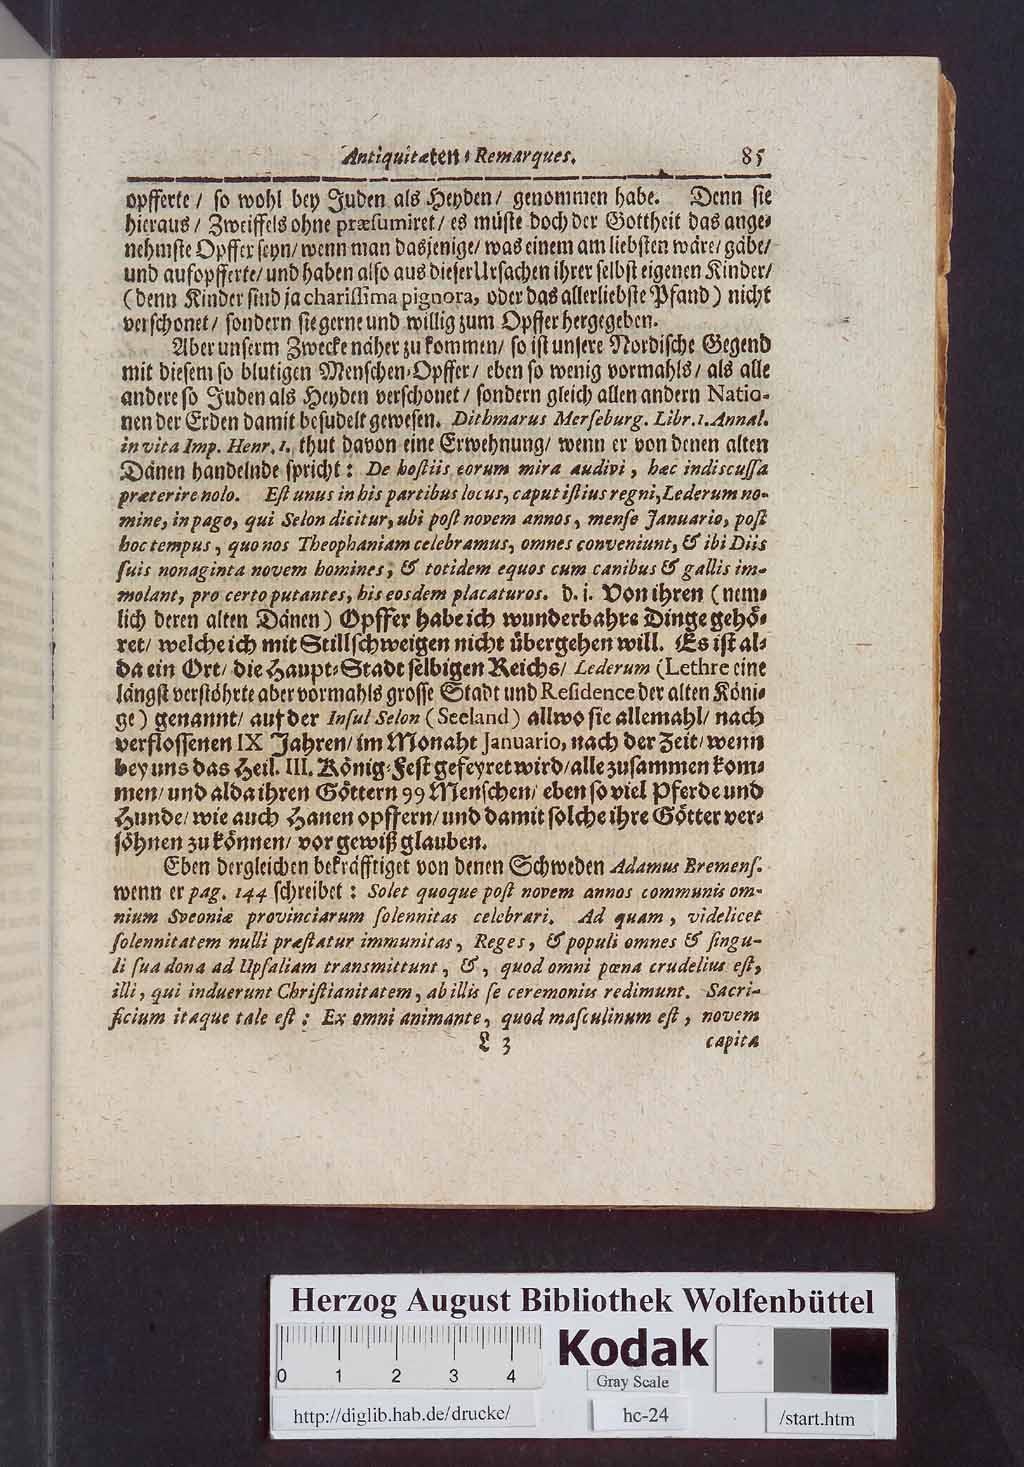 Antiquitæten-Remarques. 85
opfferte/ so wohl bey Juden als Heyden/ genommen habe. Denn sie
hieraus/ Zweiffels ohne præsumiret/ es müste doch der Gottheit das ange-
nehmste Opffer seyn/ wenn man dasjenige/ was einem am liebsten wäre/ gäbe/
und aufopfferte/ und haben also aus dieser Ursachen ihrer selbst eigenen Kinder/
(denn Kinder sind ja charissima pignora, oder das allerliebste Pfand) nicht
verschonet/ sondern sie gerne und willig zum Opffer hergegeben.
Aber unserm Zwecke näher zu kommen/ so ist unsere Nordische Gegend
mit diesem so blutigen Menschen-Opffer/ eben so wenig vormahls/ als alle
andere so Juden als Heyden verschonet/ sondern gleich allen andern Natio-
nen der Erden damit besudelt gewesen. Dithmarus Merseburg. Libr. 1. Annal.
in vita Imp. Henr. 1. thut davon eine Erwehnung/ wenn er von denen alten
Dänen handelnde spricht: De hostiis eorum mira audivi, hæc indiscussa
præterire nolo. Est unus in his partibus locus, caput istius regni, Lederum no-
mine, in pago, qui Selon dicitur, ubi post novem annos, mense Januario, post
hoc tempus, quo nos Theophaniam celebramus, omnes conveniunt, & ibi Diis
suis nonaginta novem homines, & totidem equos cum canibus & gallis im-
molant, pro certo putantes, his eosdem placaturos. d. i. Von ihren (nem-
lich deren alten Dänen) Opffer habe ich wunderbahre Dinge gehö-
ret/ welche ich mit Stillschweigen nicht übergehen will. Es ist al-
da ein Ort/ die Haupt-Stadt selbigen Reichs/ Lederum (Lethre eine
längst verstöhrte aber vormahls grosse Stadt und Residence der alten Köni-
ge) genannt/ auf der Insul Selon (Seeland) allwo sie allemahl/ nach
verflossenen IX Jahren/ im Monaht Januario, nach der Zeit/ wenn
bey uns das Heil. III. König-Fest gefeyret wird/ alle zusammen kom-
men/ und alda ihren Göttern 99 Menschen/ eben so viel Pferde und
Hunde/ wie auch Hanen opffern/ und damit solche ihre Götter ver-
söhnen zu können/ vor gewiß glauben.
Eben dergleichen bekräfftiget von denen Schweden Adamus Bremens.
wenn er pag. 144 schreibet: Solet quoque post novem annos communis om-
nium Sveoniæ provinciarum solennitas celebrari. Ad quam, videlicet
solennitatem nulli præstatur immunitas, Reges, & populi omnes & singu-
li sua dona ad Upsaliam transmittunt, &, quod omni pœna crudelius est,
illi, qui induerunt Christianitatem, ab illis se ceremoniis redimunt. Sacri-
ficium itaque tale est: Ex omni animante, quod masculinum est, novem
L 3 capita
Herzog August Bibliothek Wolfenbüttel
Kodak
0 1 2 3 4
Gray Scale
http://diglib.hab.de/drucke/ hc-24 /start.htm